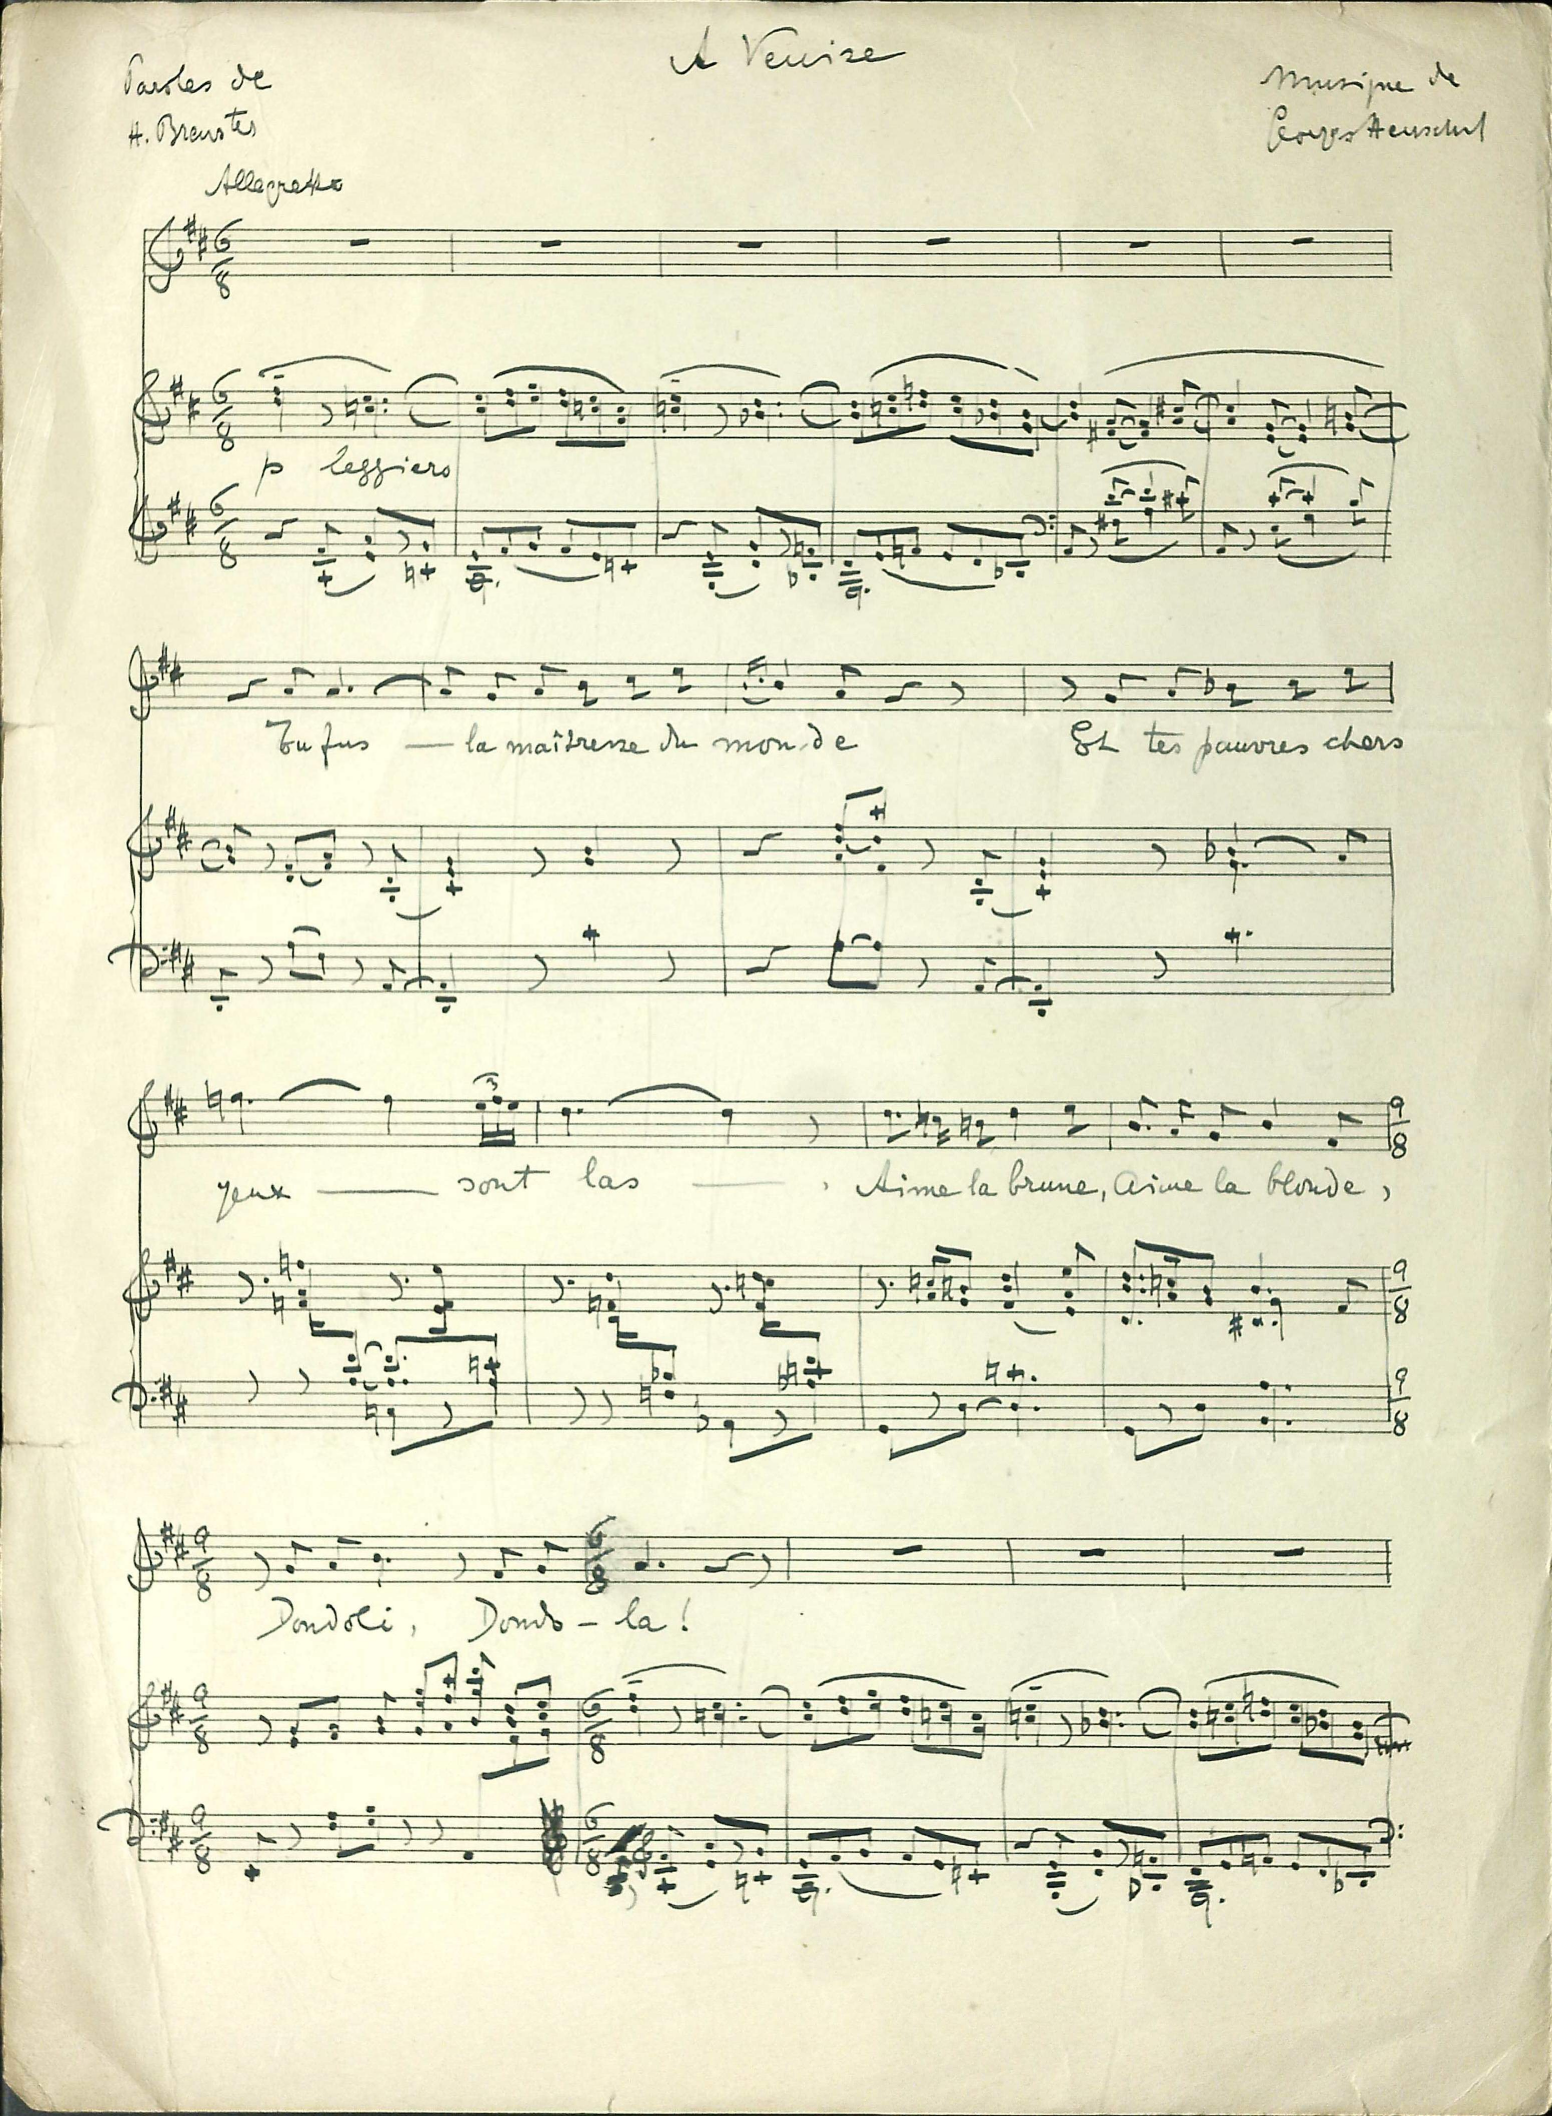 A Venise
Paroles de
H. Brewster
Musique de
Georges Henschel
Allegretto
p leggiero
Tu fus — la maîtresse du mon-de Et tes pauvres chers
yeux — sont las — , Aime la brune, Aime la blonde,
Dondoli, Dondo-la!